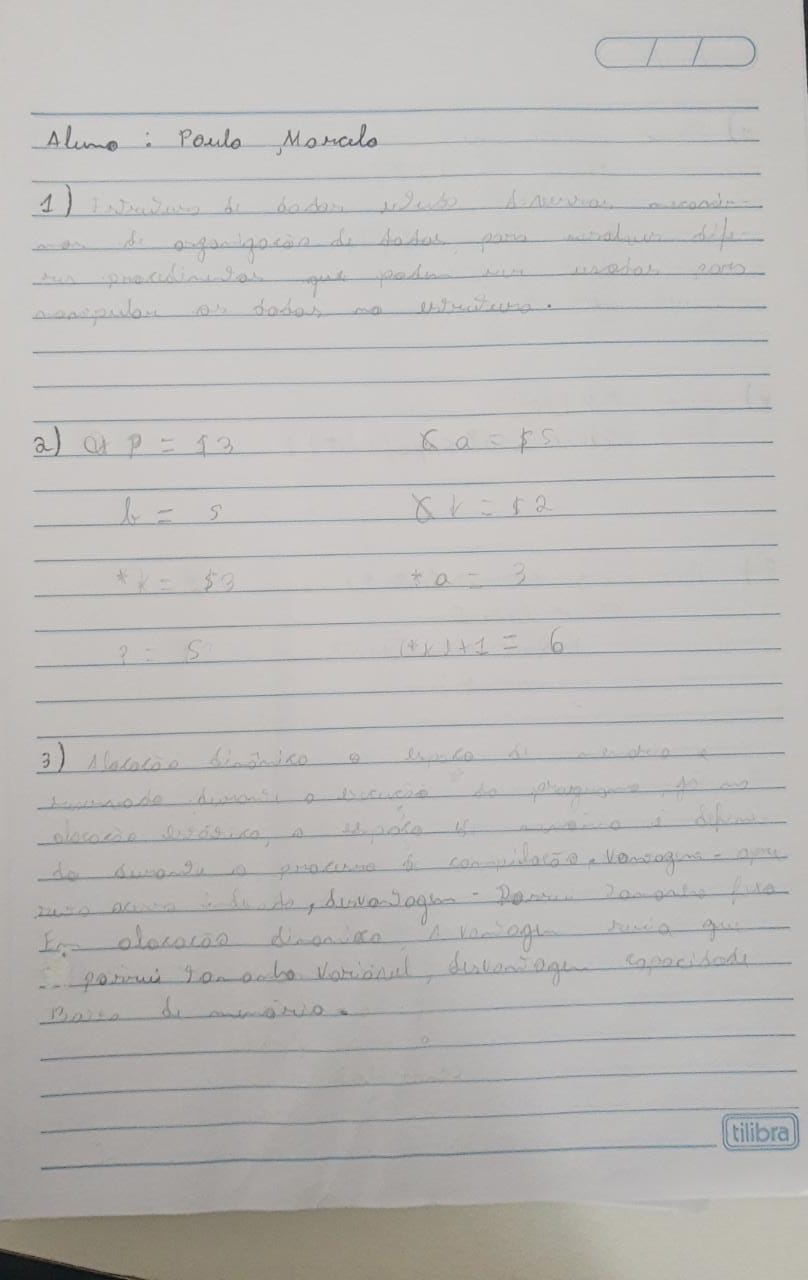 Aluno : Paulo Marcelo
1) Estrutura de dados estuda diversos mecanis-
mos de organização de dados para
procedimentos que podem ser usados para
manipular os dados na estrutura.
2) a) p = $3 & a = $5
b = 5 & k = $2
* k = $3 * a = 3
? = 5 (*k)+1 = 6
3) Alocação dinâmica o espaço de memória é
reservado durante a execução do programa, já na
alocação estática, o espaço de memória é defini-
do durante o processo de compilação. Vantagem -
acesso indexado, desvantagem - Possui tamanho fixo
Em alocação dinamica A vantagem seria que
possui tamanho variável, desvantagem capacidade
Baixa de memória.
tilibra